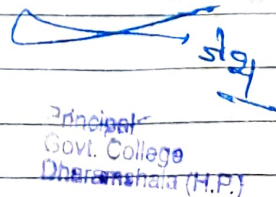 Principal
Govt. College
Dharamshala (H.P.)